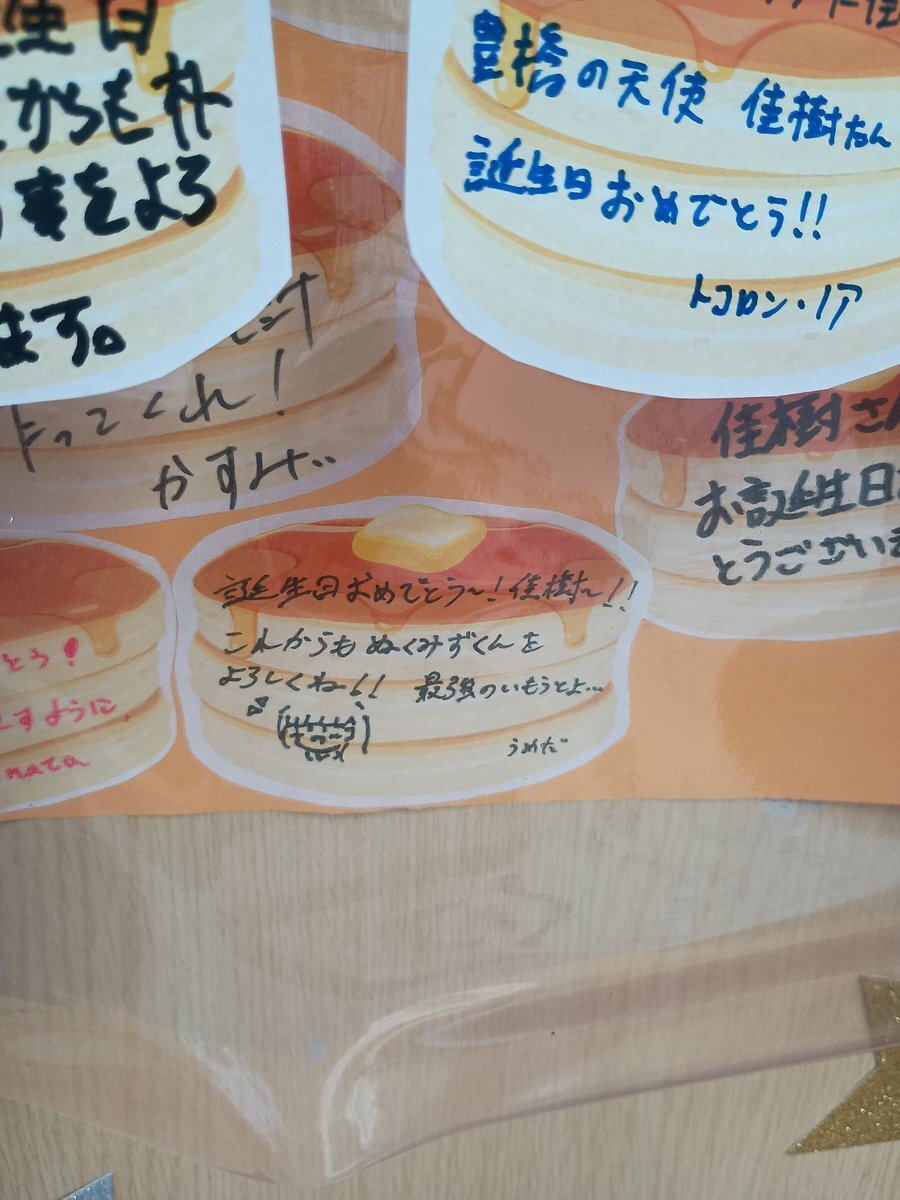 生日
からも朴
事をよろ
ます。
豊橋の天使 佳樹たん
誕生日おめでとう!!
トコロン・ノア
よってくれ!
かすみ..
佳樹さん
お誕生日
とうござい
とう!
ますように
nata
誕生日おめでとう〜!佳樹〜!!
これからもぬくみずくんを
よろしくねー!! 最強のいもうとよ...
うめだ